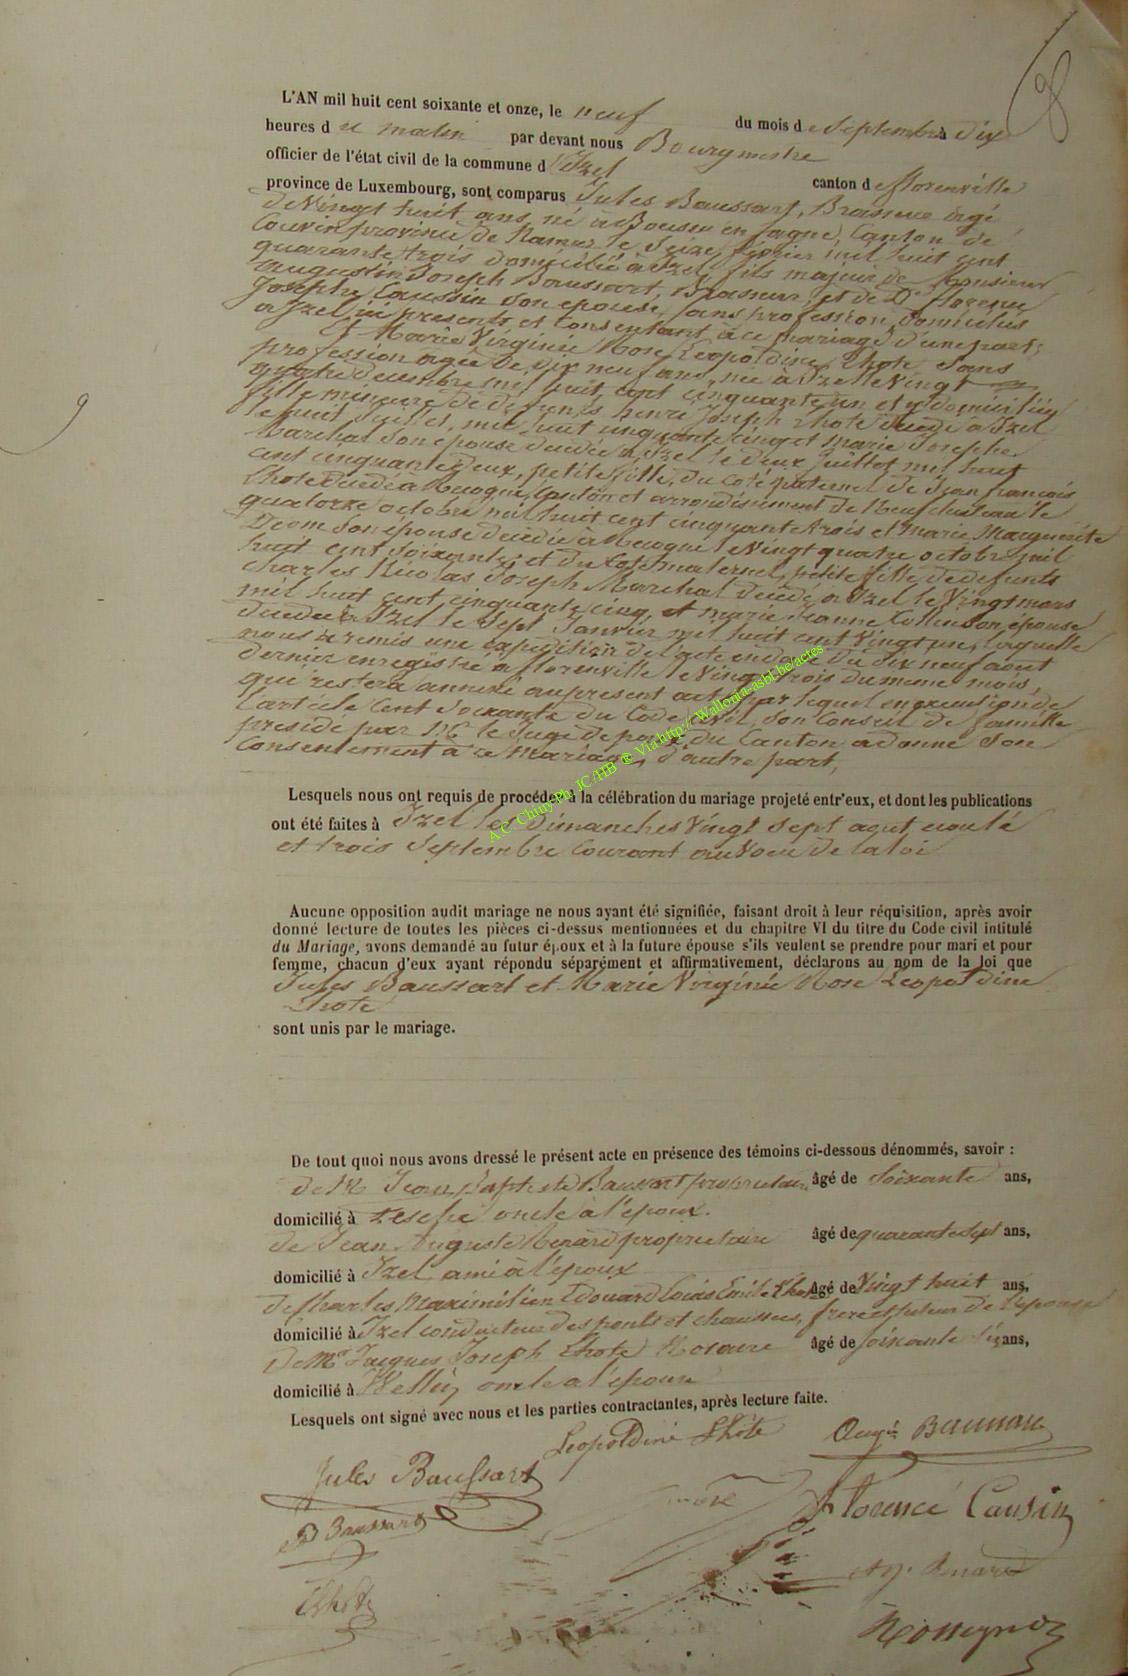 98
L'AN mil huit cent soixante et onze, le neuf du mois de Septembre à dix
heures du matin par devant nous Bourgmestre
officier de l'état civil de la commune d'Izel canton de florenville
province de Luxembourg, sont comparus Jules Baussart, Brasseur âgé
de Vingt huit ans, né à Boussu en fagne, Canton de
Couvin province de Namur le Seize février mil huit cent
quarante trois domicilié à Izel, fils majeur de Monsieur
Augustin Joseph Baussart, Brasseur, et de De florence
Josephe Caussin son épouse, sans profession, domiciliés
à Izel ici présents et consentant à ce mariage d'une part;
Et Marie Virginie Rose Léopoldine Lhote sans
profession agée de dix neuf ans, née à Izel le Vingt
quatre décembre mil huit cent cinquante un et y domiciliée
fille mineure de défunts henri Joseph Lhote décédé à Izel
le huit Juillet, mil huit cinquante cinq et Marie Josephe
Marchal son épouse décédée à Izel le deux Juillet mil huit
cent cinquante deux, petite fille, du coté paternel de Jean françois
Lhote décédé à Recogne, Canton et arrondissement de Neufchateau le
quatorze octobre mil huit cent cinquante trois et Marie Marguerite
Deom son épouse décédée à Recogne le Vingt quatre octobre mil
huit cent soixante; et du Coté maternel, petite fille, de défunts
Charles Nicolas Joseph Marchal décédé à Izel le Vingt mars
mil huit cent cinquante cinq, et Marie Jeanne Collin son épouse
décédée à Izel le sept Janvier mil huit cent Vingt un, laquelle
nous à remis une expédition de l'acte en date du dix neuf aout
dernier enregistré à florenville le Vingt trois du meme mois,
qui restera annexé au présent acte par lequel en exécution de
l'article Cent soixante du Code Civil, son Conseil de famille
présidé par Mr le Juge de paix du Canton a donné son
Consentement à ce Mariage, d'autre part,
A.C. Chiny-Ph. JC/HB ® Via http://Wallonia-asbl.be/actes
Lesquels nous ont requis de procéder à la célébration du mariage projeté entr'eux, et dont les publications
ont été faites à Izel les Dimanches Vingt Sept aout écoulé
et trois Septembre Courant au Voeu de la loi
Aucune opposition audit mariage ne nous ayant été signifiée, faisant droit à leur réquisition, après avoir
donné lecture de toutes les pièces ci-dessus mentionnées et du chapitre VI du titre du Code civil intitulé
du Mariage, avons demandé au futur époux et à la future épouse s'ils veulent se prendre pour mari et pour
femme, chacun d'eux ayant répondu séparément et affirmativement, déclarons au nom de la loi que
Jules Baussart et Marie Virginie Rose Léopoldine
Lhote
sont unis par le mariage.
De tout quoi nous avons dressé le présent acte en présence des témoins ci-dessous dénommés, savoir :
de Mr Jean Baptiste Baussart propriétaire âgé de Soixante ans,
domicilié à oncle à l'époux.
de Jean Auguste propriétaire âgé de quarante sept ans,
domicilié à Izel ami à l'époux
de Charles Maximilien Edouard Louis Emile Lhote âgé de Vingt huit ans,
domicilié à Izel conducteur des ponts et chaussées, frère et tuteur de l'épouse
De Mr Jacques Joseph Lhote Notaire âgé de soixante six ans,
domicilié à Wellin oncle à l'épouse
Lesquels ont signé avec nous et les parties contractantes, après lecture faite.
Léopoldine Lhôte Augin Baussart
Jules Baussart
Florence Causin
Baussart
Lhote